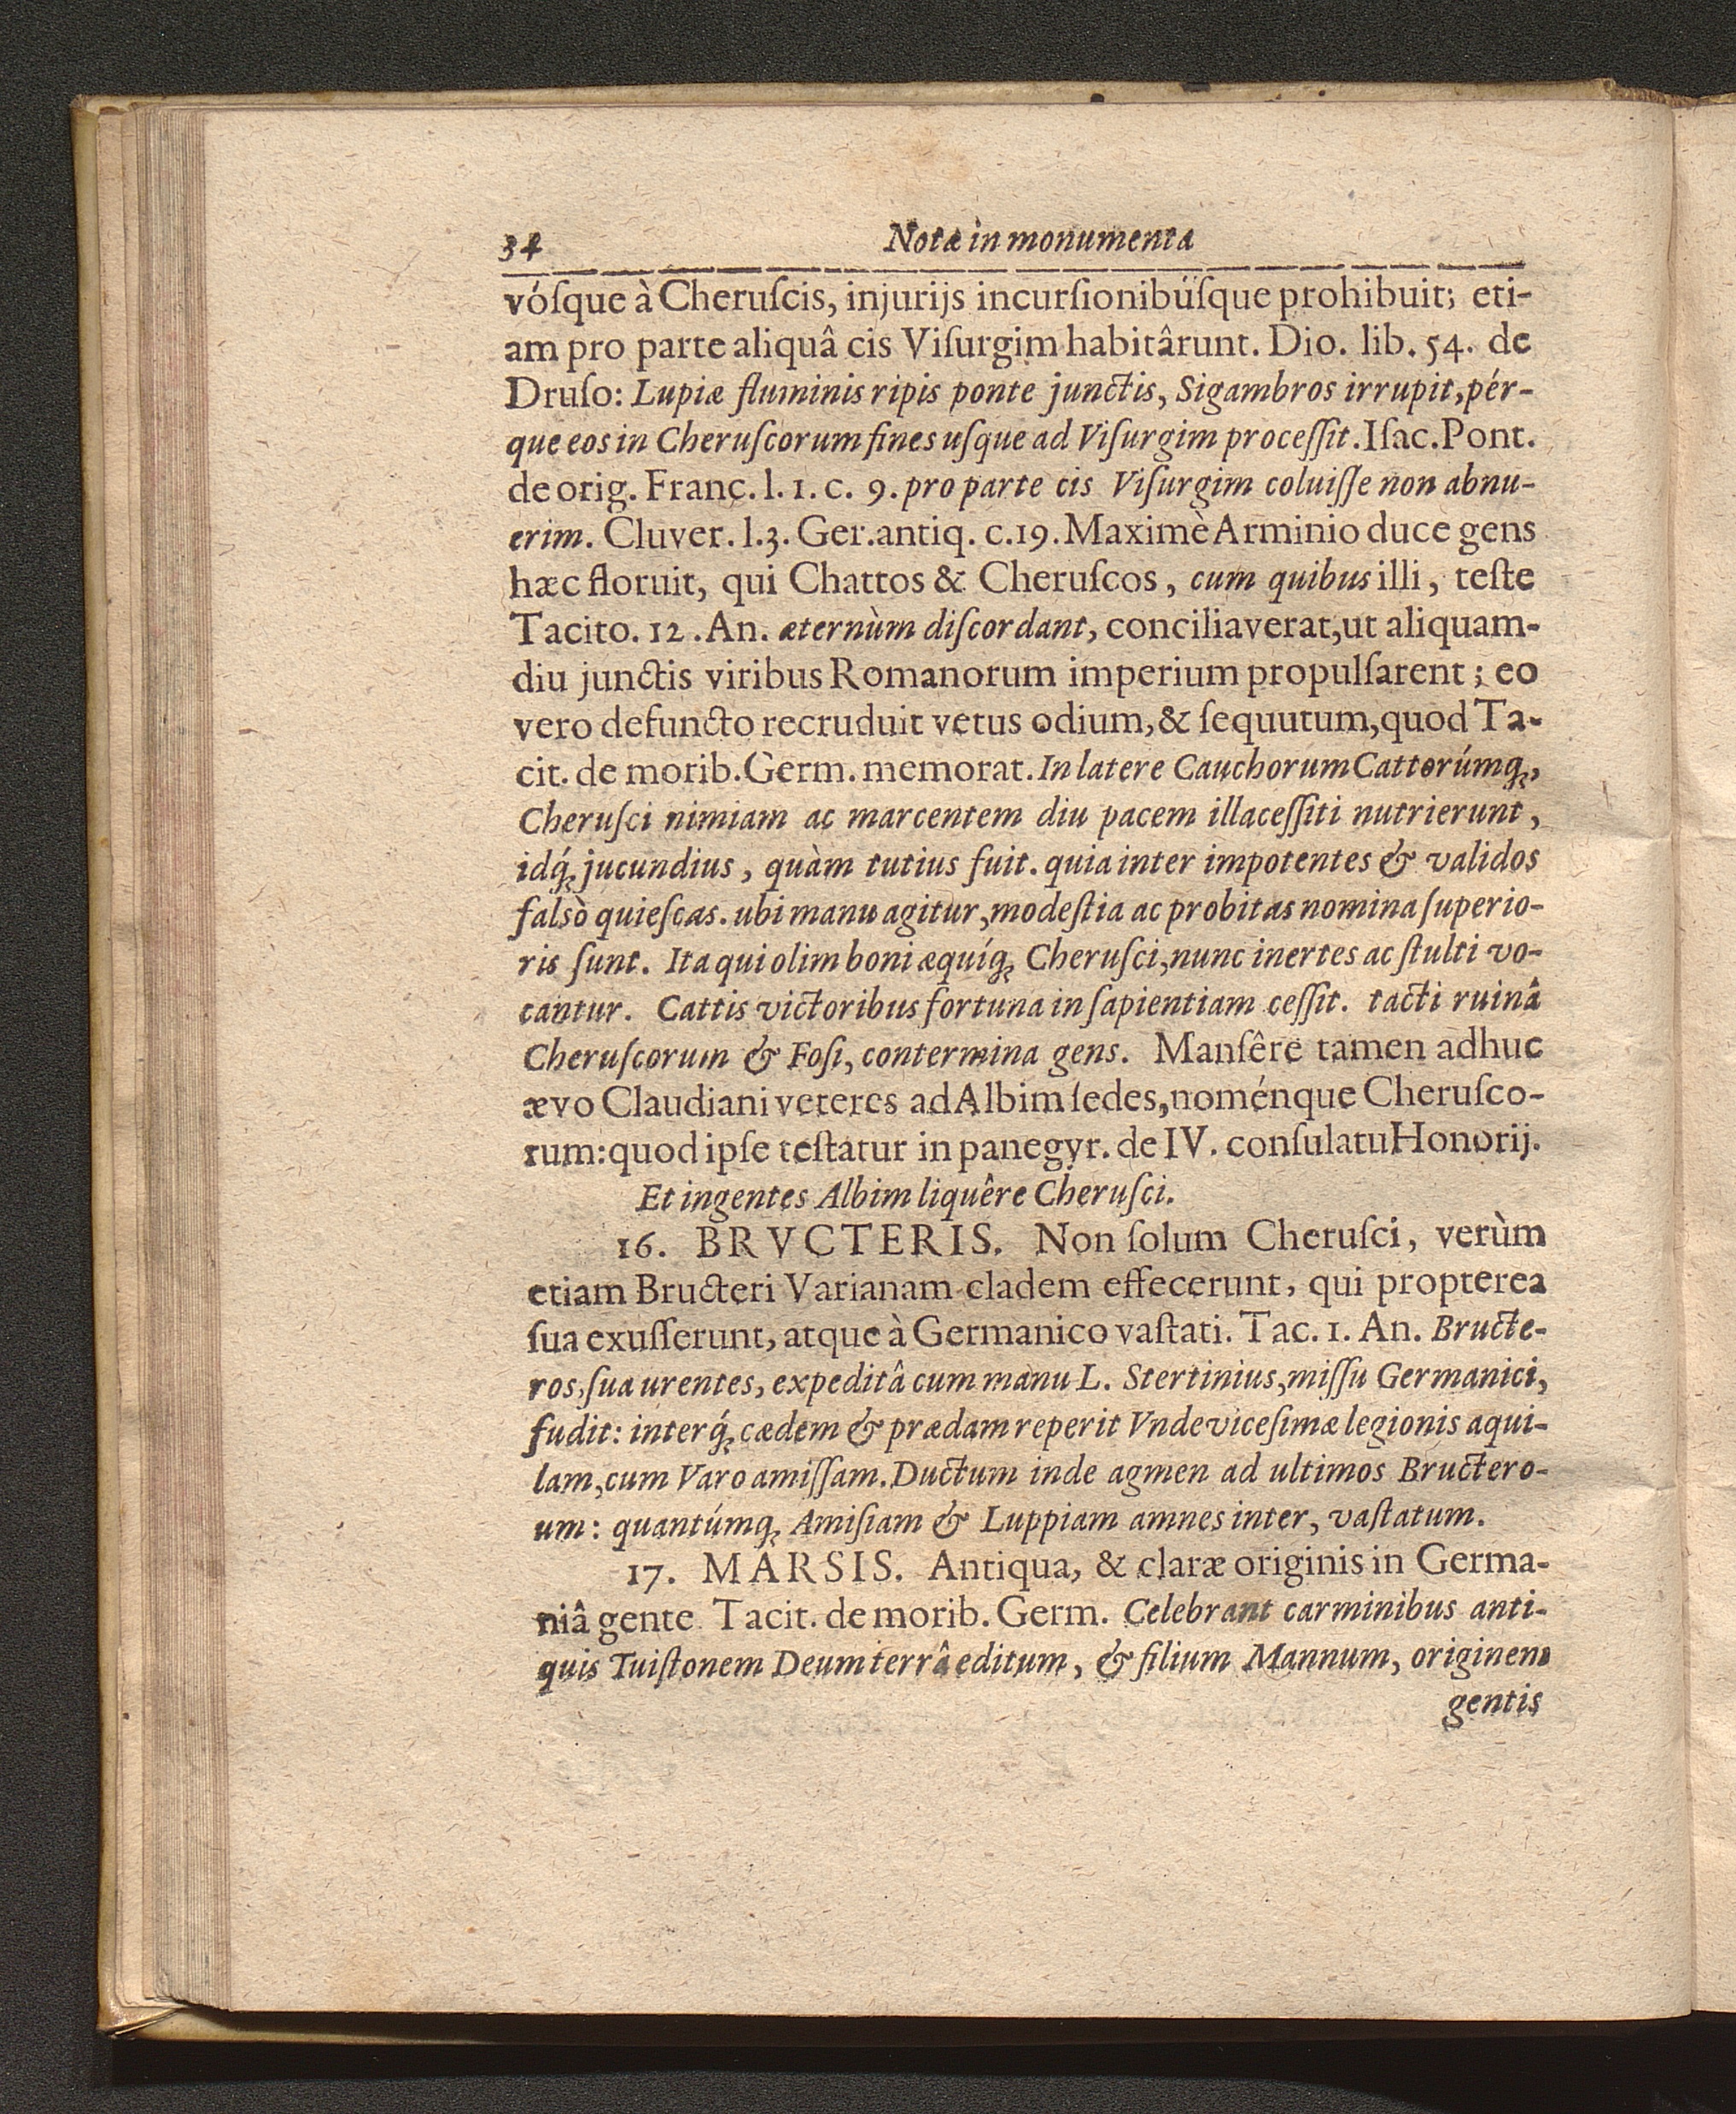 34 Notæ in monumenta
vóſque à Cheruſcis, injurijs incurſionibúſque prohibuit; eti-
am pro parte aliquâ cis Viſurgim habitârunt. Dio. lib. 54. de
Druſo: Lupiæ fluminis ripis ponte junctis, Sigambros irrupit, pér-
que eos in Cheruſcorum fines uſque ad Viſurgim proceſſit. Iſac. Pont.
de orig. Franc. l. 1. c. 9. pro parte cis Viſurgim coluiſſe non abnu-
erim. Cluver. l. 3. Ger. antiq. c. 19. Maximè Arminio duce gens
hæc floruit, qui Chattos & Cheruſcos, cum quibus illi, teſte
Tacito. 12. An. æternùm diſcordant, conciliaverat, ut aliquam-
diu junctis viribus Romanorum imperium propulſarent; eo
vero defuncto recruduit vetus odium, & ſequutum, quod Ta-
cit. de morib. Germ. memorat. In latere Cauchorum Cattorúmq;,
Cheruſci nimiam ac marcentem diu pacem illaceſſiti nutrierunt,
idq́; jucundius, quàm tutius fuit. quia inter impotentes & validos
falsò quieſcas. ubi manu agitur, modeſtia ac probitas nomina ſuperio-
ris ſunt. Ita qui olim boni æquíq; Cheruſci, nunc inertes ac ſtulti vo-
cantur. Cattis victoribus fortuna in ſapientiam ceſſit. tacti ruinâ
Cheruſcorum & Foſi, contermina gens. Manſêre tamen adhuc
ævo Claudiani veteres ad Albim ſedes, noménque Cheruſco-
rum: quod ipſe teſtatur in panegyr. de IV. conſulatu Honorij.
Et ingentes Albim liquêre Cheruſci.
16. BRVCTERIS. Non ſolum Cheruſci, verùm
etiam Bructeri Varianam cladem effecerunt, qui propterea
ſua exuſſerunt, atque à Germanico vaſtati. Tac. 1. An. Bructe-
ros, ſua urentes, expeditâ cum manu L. Stertinius, miſſu Germanici,
fudit: interq́; cædem & prædam reperit Vndeviceſimæ legionis aqui-
lam, cum Varo amiſſam. Ductum inde agmen ad ultimos Bructero-
um: quantúmq; Amiſiam & Luppiam amnes inter, vaſtatum.
17. MARSIS. Antiqua, & claræ originis in Germa-
niâ gente Tacit. de morib. Germ. Celebrant carminibus anti-
quis Tuiſtonem Deum terrâ editum, & filium Mannum, originem
gentis